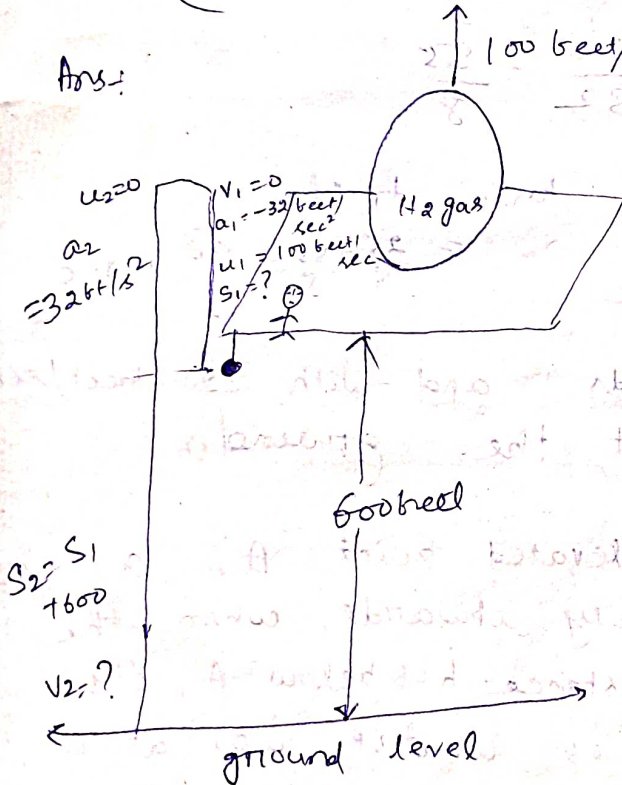 Ans:
100 beet/
H2 gas
u2=0
a2
=32bt/s²
V1=0
a1=-32 beet/
sec²
u1=100 beet/
sec
S1=?
600beel
S2=S1
+600
V2=?
ground level